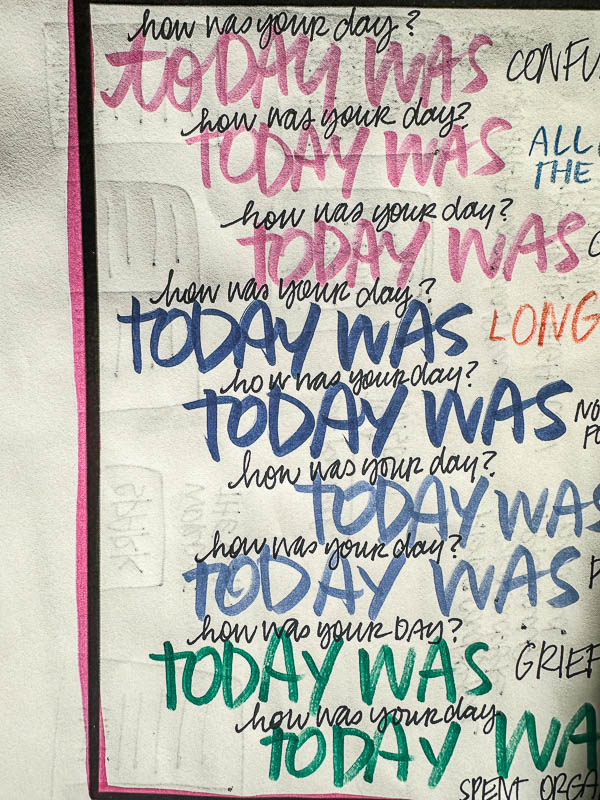 how was your day?
TODAY WAS CONFU
how was your day?
TODAY WAS ALL
THE
how was your day?
TODAY WAS
how was your day?
TODAY WAS LONG
how was your day?
TODAY WAS NO
how was your day?
TODAY WAS
how was your day?
TODAY WAS
how was your DAY?
TODAY WAS GRIEF
how was your day
TODAY WA
SPENT ORGA